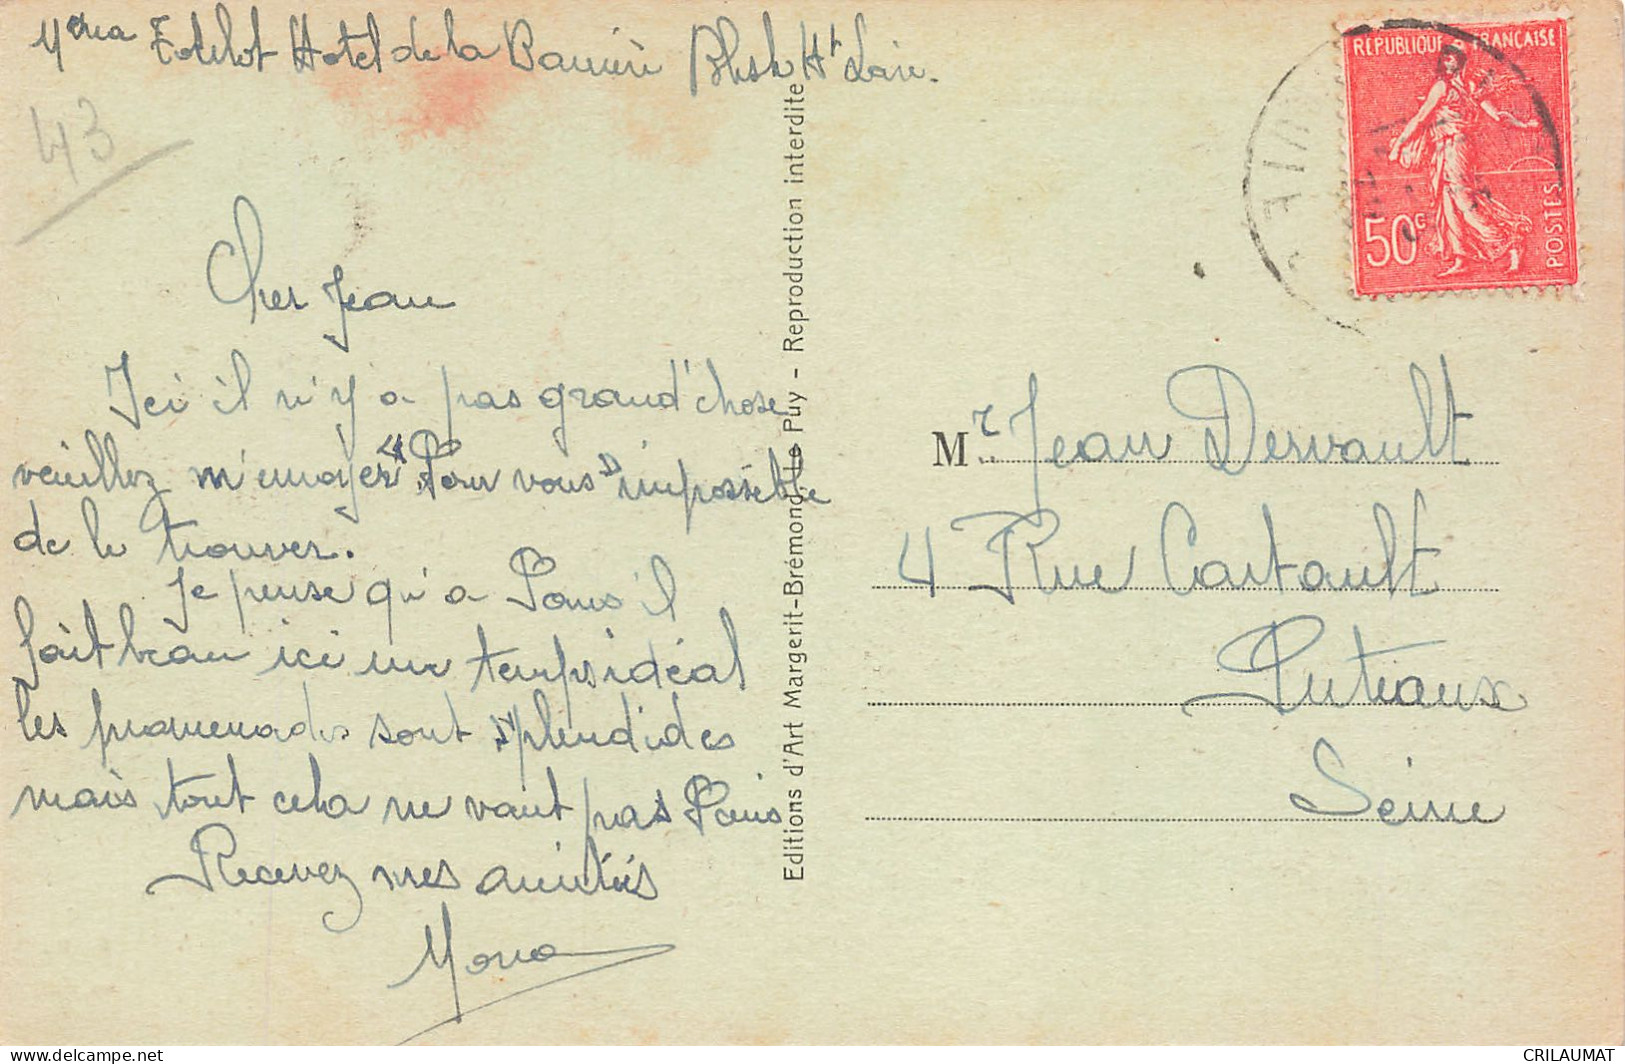 Hotel de la Barrière Blesle Hte Loire.
43
Cher Jean
Ici il n'y a pas grand'chose
veuillez m'envoyer "Pour vous" impossible
de le trouver.
Je pense qu'a Paris il
fait beau ici un temps idéal
les promenades sont splendides
mais tout cela ne vaut pas Paris
Recevez mes amitiés
Editions d'Art Margerit-Brémond, Le Puy - Reproduction interdite
REPUBLIQUE FRANÇAISE
50c
POSTES
Mr Jean Dervault
4 Rue Cartault
Puteaux
Seine
CRILAUMAT
www.delcampe.net